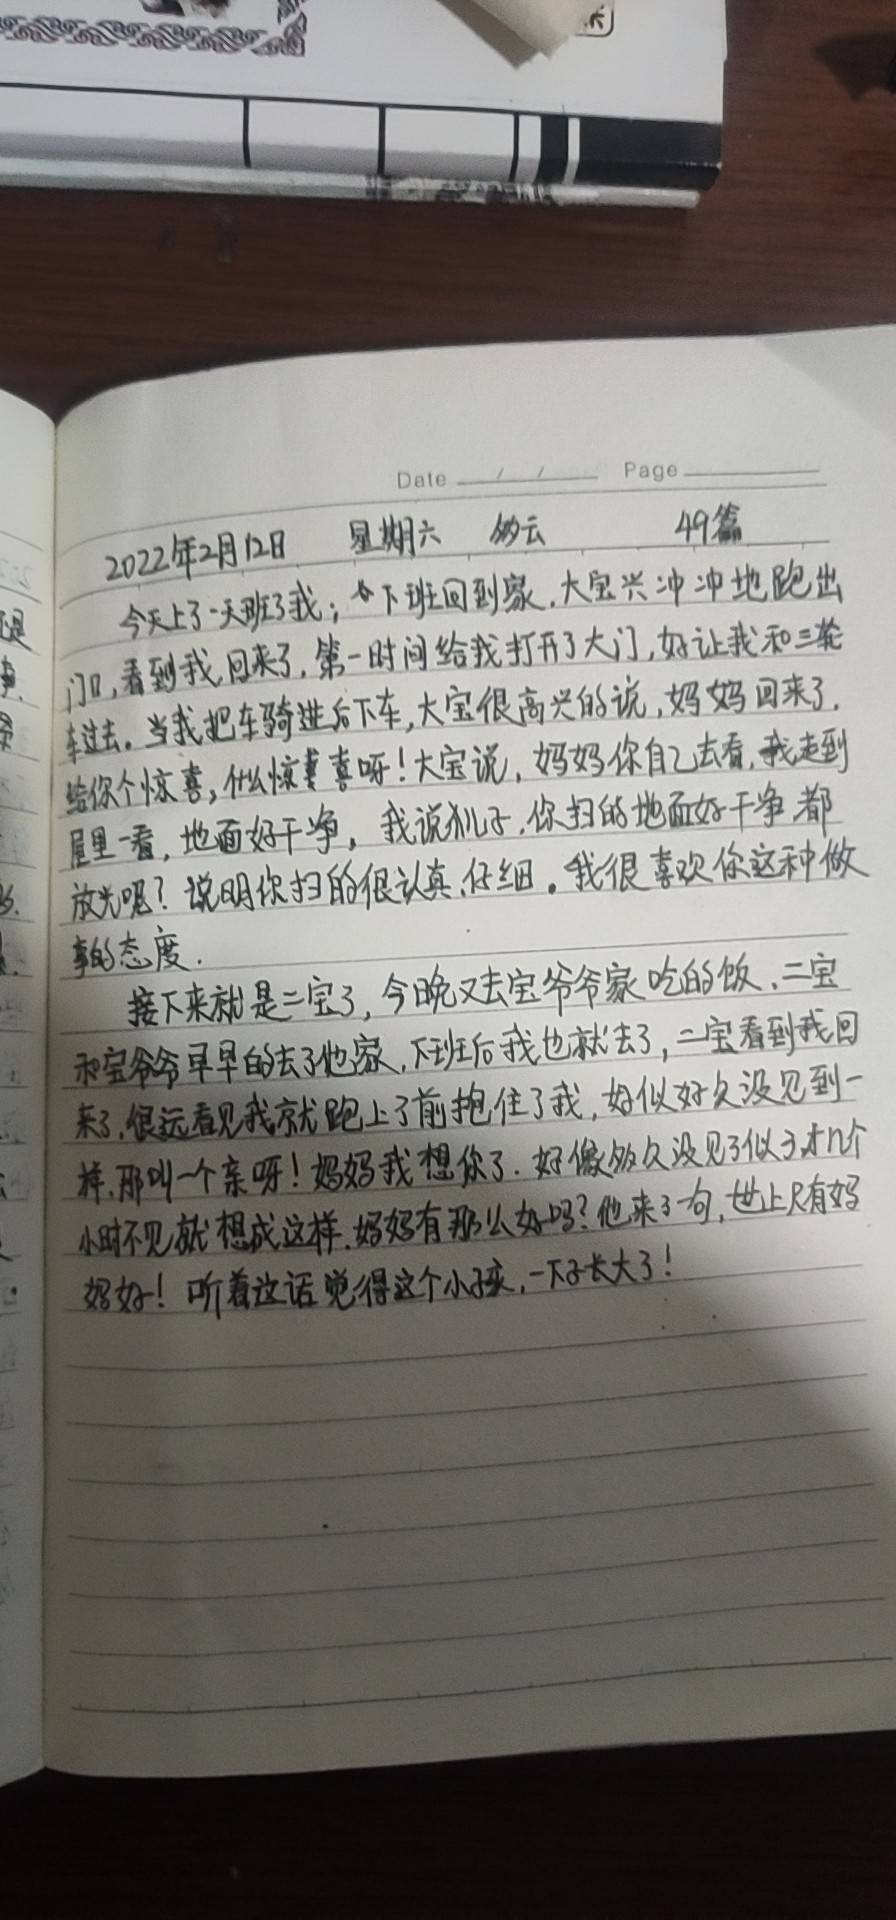 Date / / Page
2022年2月12日 星期六 多云 49篇
今天上了一天班了我；下班回到家，大宝兴冲冲地跑出
门口，看到我回来了，第一时间给我打开了大门，好让我和三轮
车过去。当我把车骑进后下车，大宝很高兴的说，妈妈回来了，
给你个惊喜，什么惊喜呀！大宝说，妈妈你自己去看，我走到
屋里一看，地面好干净，我说儿子，你扫的地面好干净都
放光呢？说明你扫的很认真，仔细。我很喜欢你这种做
事的态度。
接下来就是二宝了，今晚又去宝爷爷家吃的饭，二宝
和宝爷爷早早的去了他家，下班后我也就去了，二宝看到我回
来了，很远看见我就跑上了前抱住了我，好似好久没见到一
样，那叫一个亲呀！妈妈我想你了。好像多久没见了似了，才几个
小时不见就想成这样，妈妈有那么好吗？他来了句，世上只有妈
妈好！听着这话觉得这个小孩，一下子长大了！